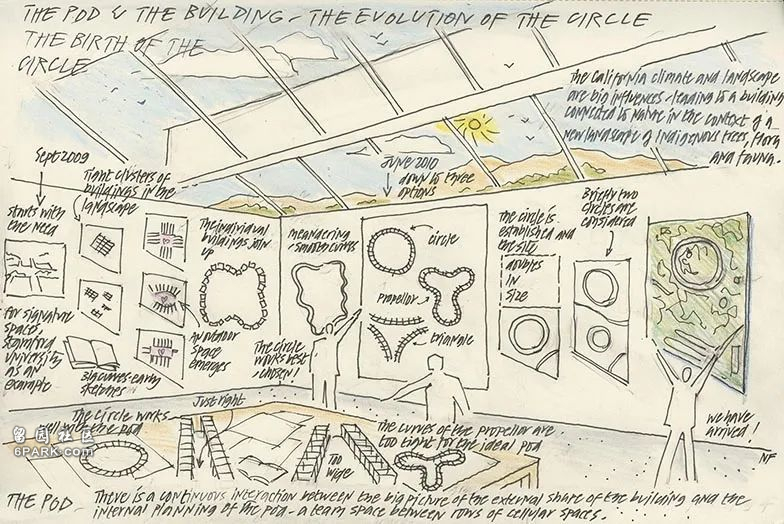 THE POD & THE BUILDING - THE EVOLUTION OF THE CIRCLE
THE BIRTH OF THE
CIRCLE
The California climate and landscape
are big influences - leading to a building
connected to nature in the context of a
new landscape of indigenous trees, flora
and fauna.
Sept 2009
Tight clusters of
buildings in the
landscape
starts with
the need
for signature
space,
Stanford
University
as an
example
Big curves - early
sketches
The individual
buildings join
up
An outdoor
space
emerges
meandering
- smoother curves
The circle
works best
- chosen!
June 2010
down to three
options
circle
propellor
triangle
The circle is
established and
the site
doubles
in
size
Briefly two
circles are
considered
we have
arrived!
NF
The circle works
well with the pod
Just right
Too
wide
The curves of the propellor are
too tight for the ideal pod
留园社区
6PARK.COM
THE POD - There is a continuous interaction between the big picture of the external share of the building and the
internal planning of the pod - a team space between rows of cellular spaces.